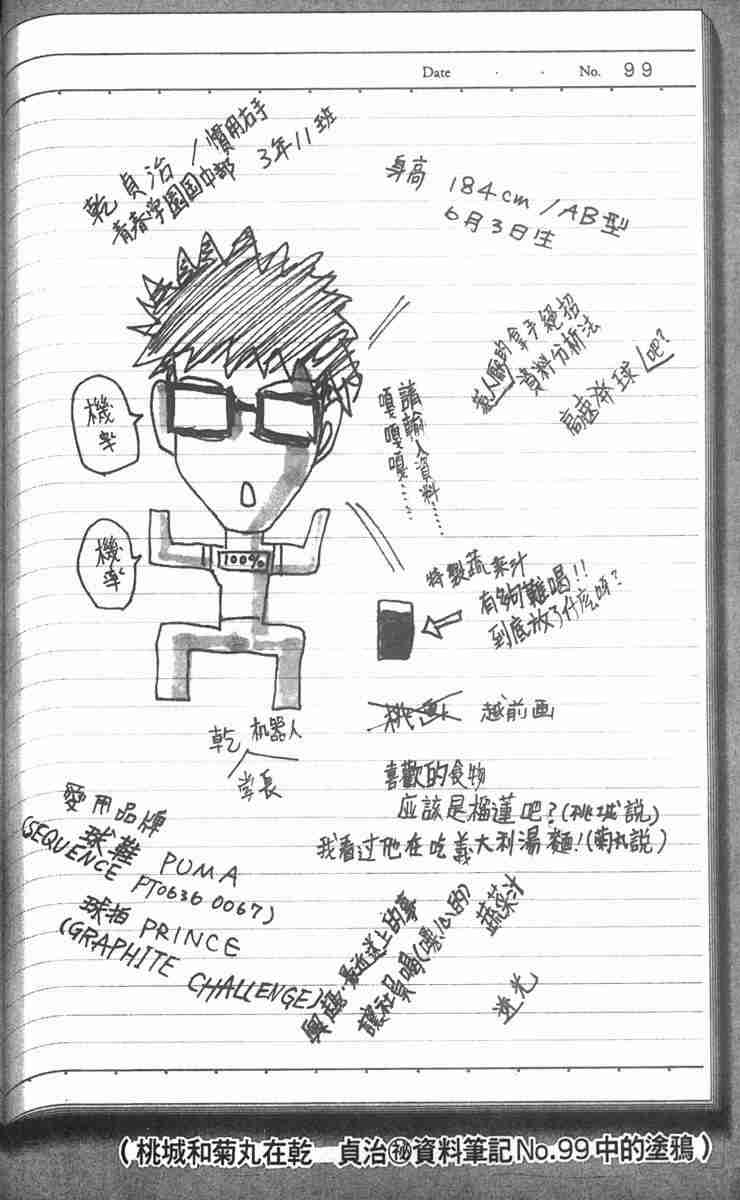 Date · · No. 99
乾 貞治 / 慣用右手
青春学園国中部 3年11班
身高 184cm / AB型
6月3日生
惹人厭的拿手絕招
資料分析法
高速発球吧?
請輸入資料……
嘎嘎嘎嘎……
機率
機率
100%
特製蔬菜汁
有夠難喝!!
到底放了什么呀?
越前画
乾 机器人
学長
喜歡的食物
应該是榴蓮吧?(桃城説)
我看过他在吃義大利湯麵!(菊丸說)
愛用品牌
球鞋 PUMA
(SEQUENCE PT0636 0067)
球拍 PRINCE
(GRAPHITE CHALLENGE)
興趣·最近迷上的事
讓社員喝(噁心的)蔬菜汁
透光
(桃城和菊丸在乾 貞治㊙資料筆記No.99中的塗鴉)